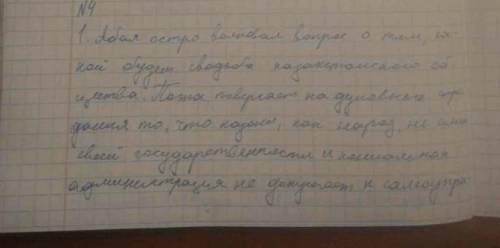 №4
1. Абая остро волновал вопрос о том, ка
кой будет свадьба казахстанского об
щества. Поэта повергает на духовные
дания то, что казахи, как народ, не име
своей государственности и колониальная
администрация не допускает к самоупра